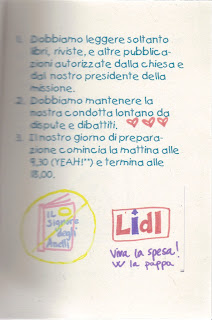 1. Dobbiamo leggere soltanto
libri, riviste, e altre pubblica-
zioni autorizzate dalla chiesa e
dal nostro presidente della
missione.
2. Dobbiamo mantenere la
nostra condotta lontano da
dispute e dibattiti.
3. Il nostro giorno di prepara-
zione comincia la mattina alle
9,30 (YEAH!**) e termina alle
18,00.
IL
Signore
degli
Anelli
Lidl
Viva la spesa!
W la pappa